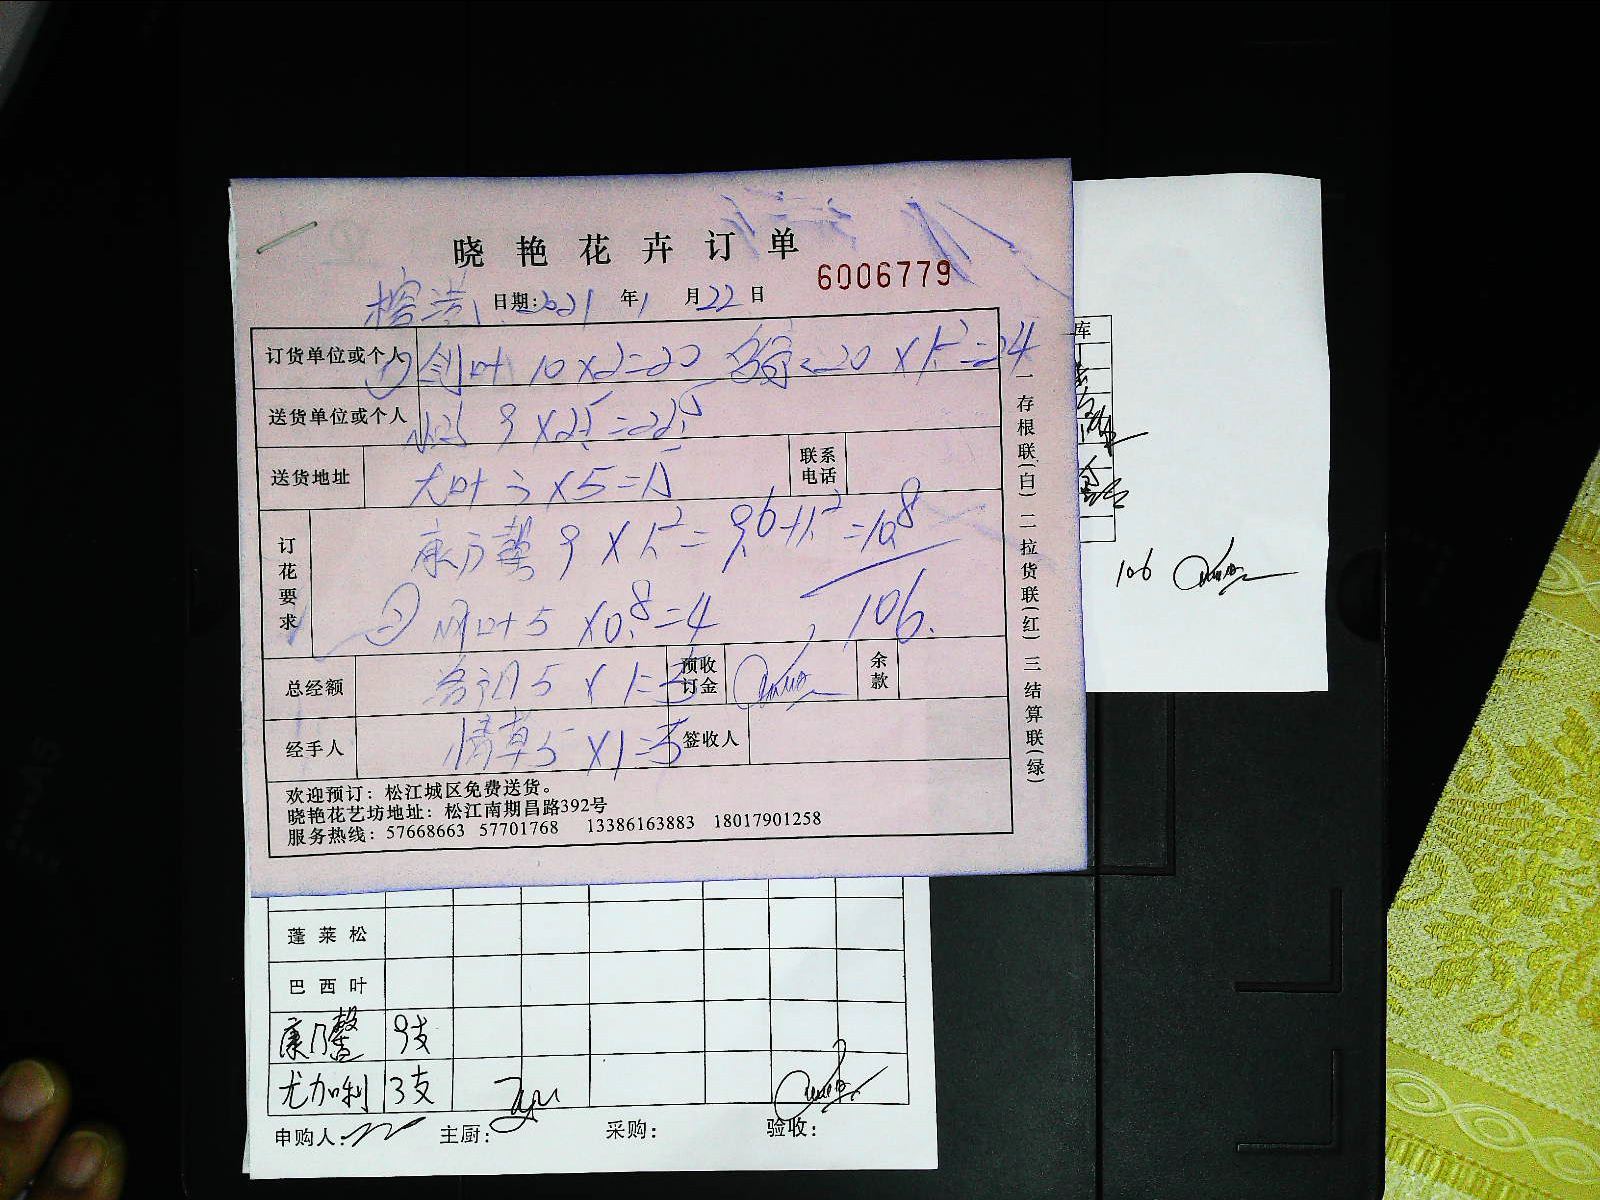 晓艳花卉订单
6006779
日期:2021年1月22日
订货单位或个人 剑叶 10×2=20 20×1.2=24
送货单位或个人 9×2.5=22.5
送货地址 尤叶 3×5=15 联系电话
订花要求 康乃馨 9×1.2=9.6+1.2=10.8
5×0.8=4 106.
总经额 5×1=5 预收订金 余款
经手人 情草5×1=5 签收人
欢迎预订：松江城区免费送货。
晓艳花艺坊地址：松江南期昌路392号
服务热线：57668663 57701768 13386163883 18017901258
一存根联(白)二拉货联(红)三结算联(绿)
车
106
蓬莱松
巴西叶
康乃馨 9支
尤加利 3支
申购人: 主厨: 采购: 验收: